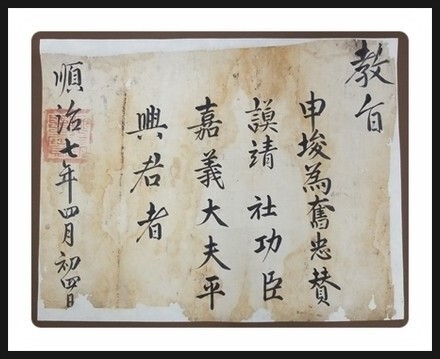 教旨
申埈為奮忠賛
謨靖社功臣
嘉義大夫平
興君者
順治七年四月初四日